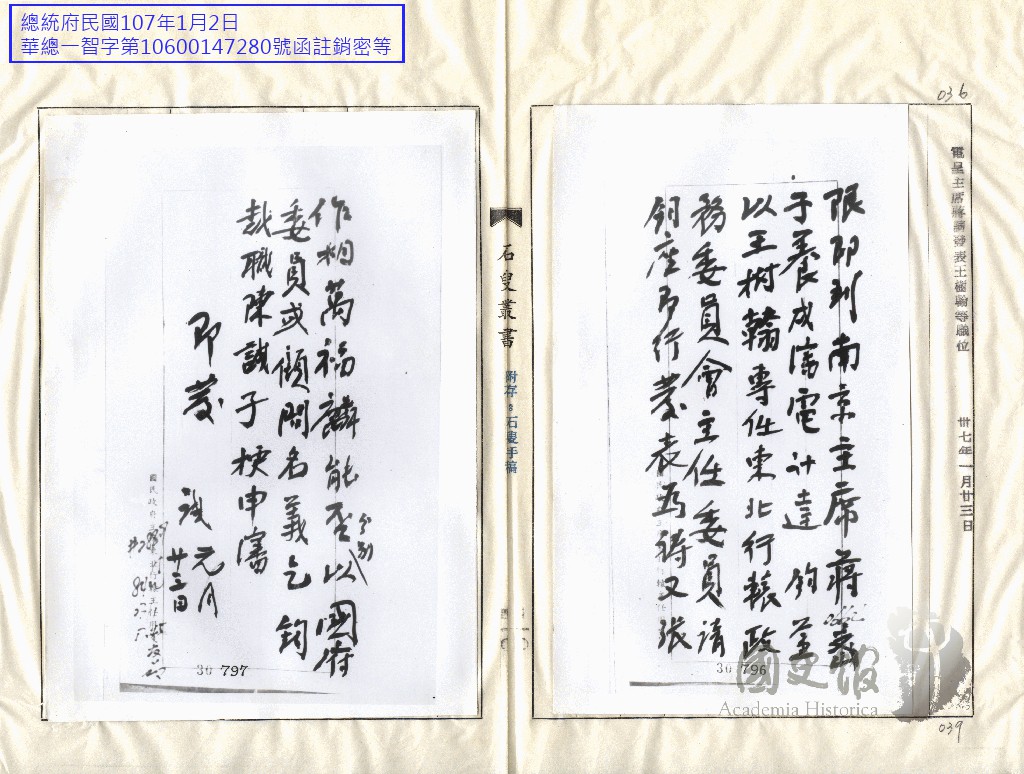 總統府民國107年1月2日
華總一智字第10600147280號函註銷密等
036
電呈主席蔣請發表王樹翰等職位
卅七年一月廿三日
限即到南京主席蔣
于養成瀋電計達 鈞
以王樹翰專任東北行轅政
務委員會主任委員請
鈞座即行發表為禱又張
30 796
039
國史館
Academia Historica
石叟叢書
附存：石叟手稿
作相萬福麟能否以國府
分別
委員或顧問名義乞 鈞
裁職陳誠子梗申瀋
即發
誠 元月
廿三日
30 797